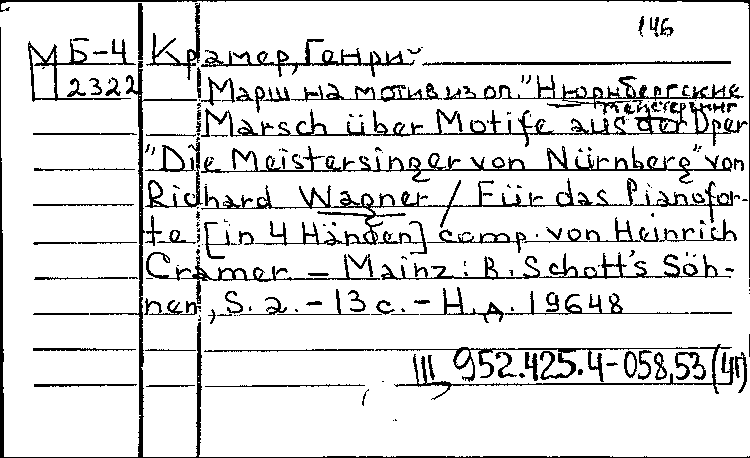 146
М Б-4 Крамер, Генри
2322 Марш на мотив из оп. "Нюрнбергские
мейстерзинг
Marsch über Motife aus der Oper
"Die Meistersinger von Nürnberg" von
Richard Wagner / Für das Pianofor-
te [in 4 Händen] comp. von Heinrich
Cramer – Mainz: B. Schott's Söh-
nen, S. a. – 13 c. – Н. д. 19648
III 952.425.4-058,53(4П)